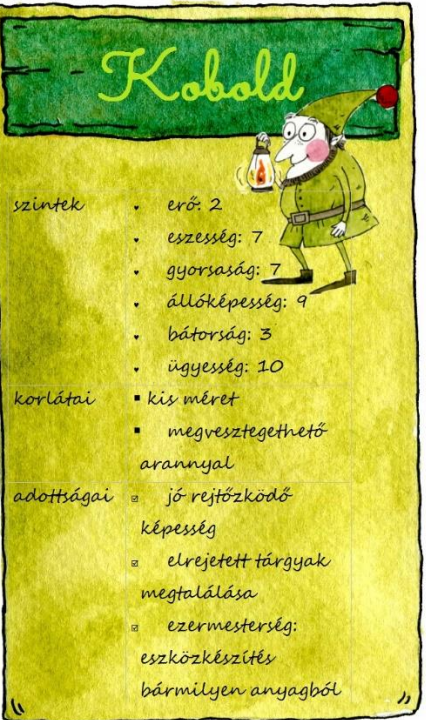 Kobold
szintek ♥ erő: 2
♥ eszesség: 7
♥ gyorsaság: 7
♥ állóképesség: 9
♥ bátorság: 3
♥ ügyesség: 10
korlátai ▪ kis méret
▪ megvesztegethető
arannyal
adottságai ☑ jó rejtőzködő
képesség
☑ elrejetett tárgyak
megtalálása
☑ ezermesterség:
eszközkészítés
bármilyen anyagból